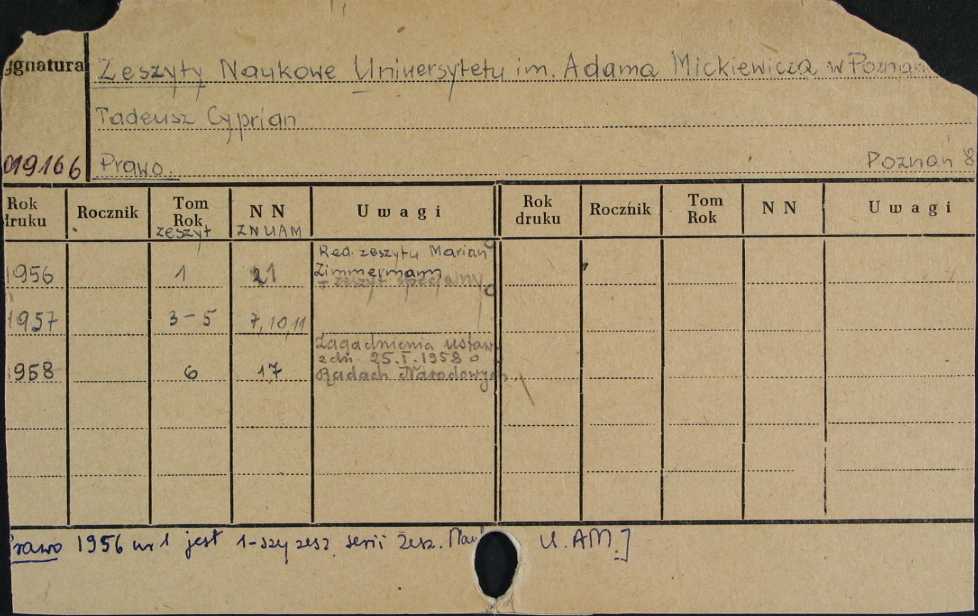 ygnatura Zeszyty Naukowe Uniwersytetu im. Adama Mickiewicza w Poznan
Tadeusz Cyprian
019166 Prawo. Poznań
Rok druku Rocznik Tom Rok zeszyt NN ZNUAM Uwagi Rok druku Rocznik Tom Rok NN Uwagi
Red. zeszytu Marian
1956 1 21 Zimmermann
= zeszyt specjalny
1957 3-5 7,10,11
Zagadnienia ustawy
z dn. 25.I.1958 o
1958 6 17 Radach Narodowych
Prawo 1956 nr 1 jest 1-szy zesz. serii Zesz. Nau U.AM.]